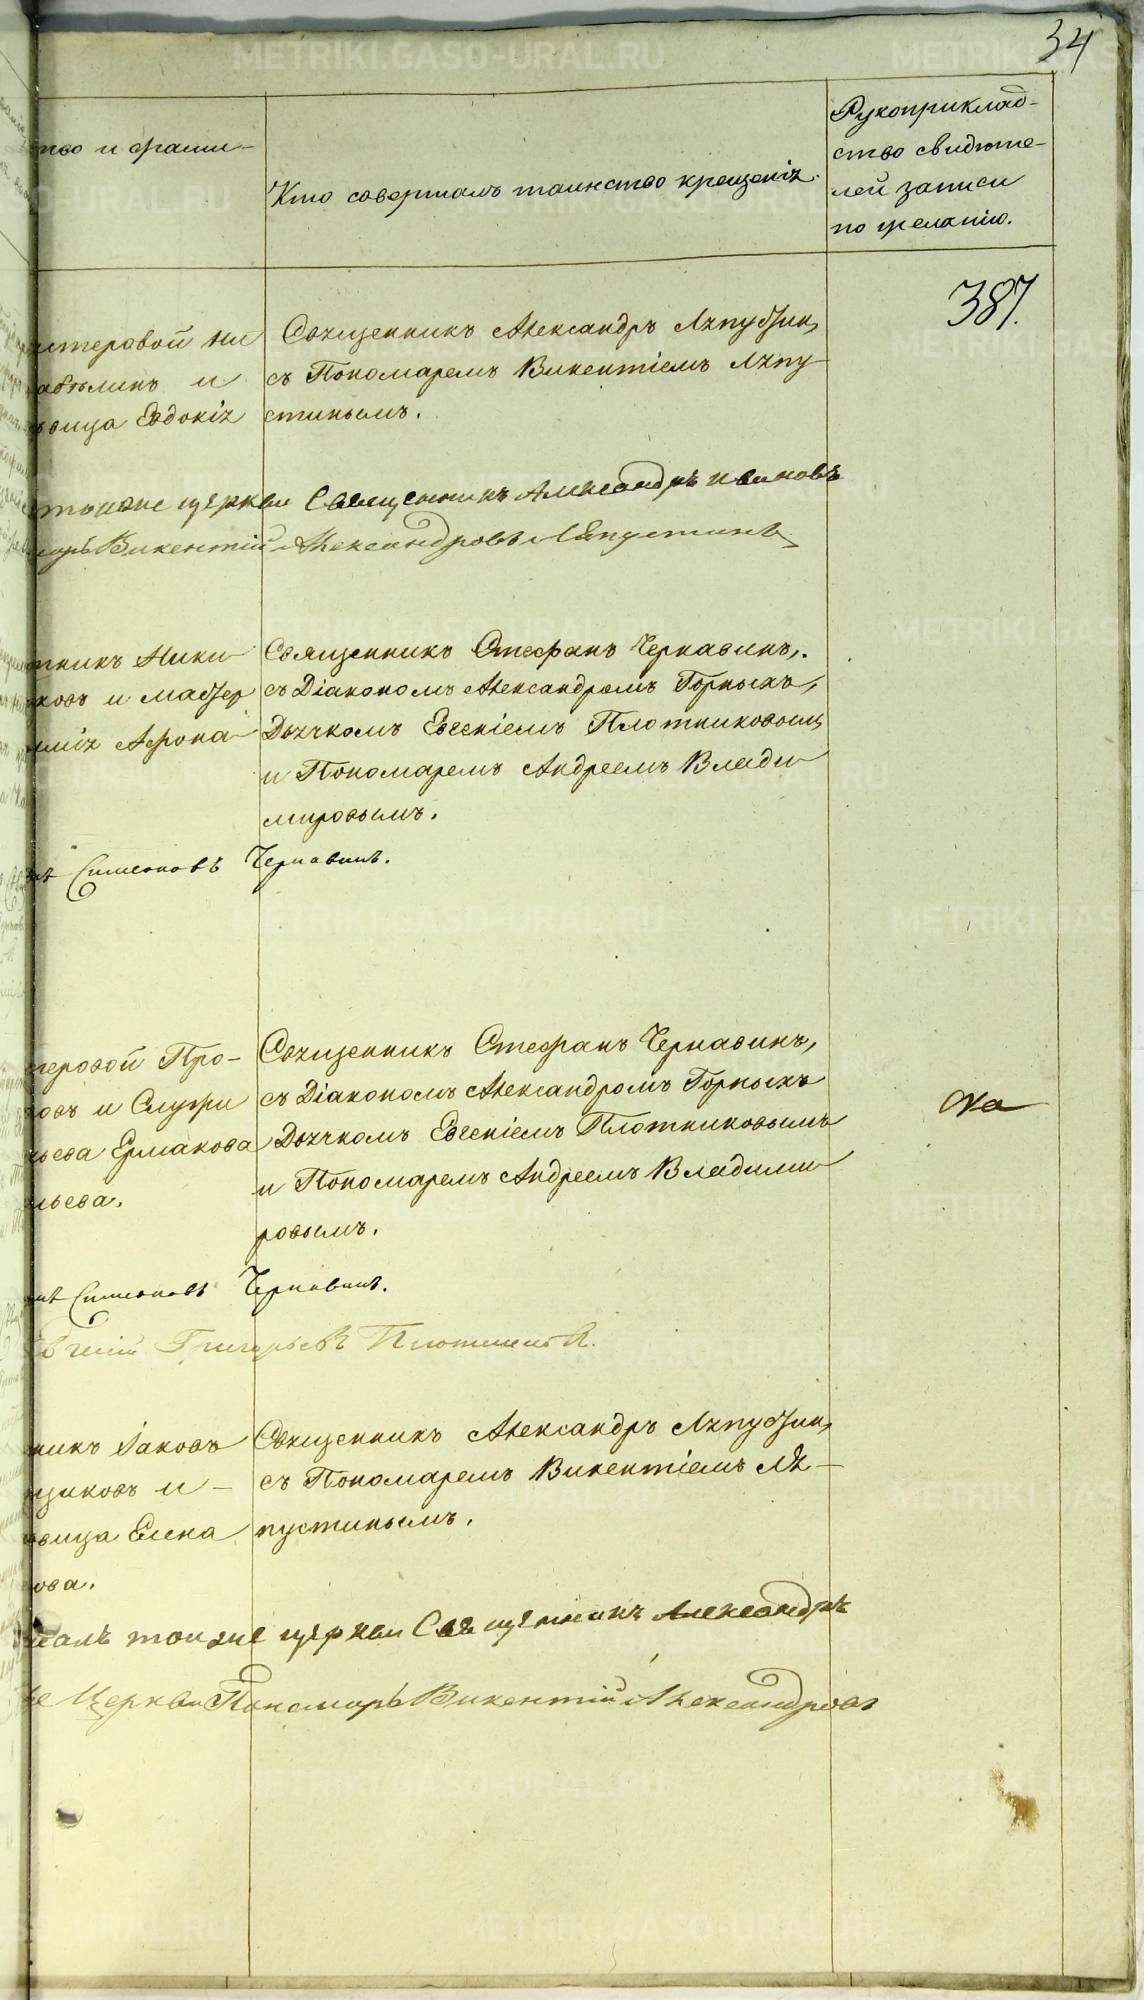 34
тво и фами-
Кто совершалъ таинство крещенія.
Рукоприклад-
ство свидѣте-
лей записи
по желанію.
387.
стеровой
и
вица Евдокія
Священникъ Александръ Ляпустин,
съ Пономаремъ Викентіемъ Ляпу-
стинымъ.
церкви Священникъ Александръ Ивановъ
Викентій Александровъ Ляпустинъ
тникъ Ники-
ковъ и мастер
Афона-
Священникъ Стефанъ Чернавинъ,
съ Діакономъ Александромъ Горныхъ,
Дьячкомъ Евгеніемъ Плотниковымъ
и Пономаремъ Андреемъ Влади-
мировымъ.
Симеоновъ Чернавинъ.
теровой Про-
ковъ и Служи
ьева Ермакова
льева.
Священникъ Стефанъ Чернавинъ,
съ Діакономъ Александромъ Горныхъ
Дьячкомъ Евгеніемъ Плотниковымъ
и Пономаремъ Андреемъ Владими-
ровымъ.
Симеоновъ Чернавинъ.
Евгеній Григорьевъ Плотниковъ.
никъ Іаковъ
щиковъ и -
вица Елена
ова.
Священникъ Александръ Ляпустин,
съ Пономаремъ Викентіемъ Ля-
пустинымъ.
салъ тоиже церкви Священникъ Александръ
же Церкви Пономарь Викентій Александровъ
METRIKI.GASO-URAL.RU